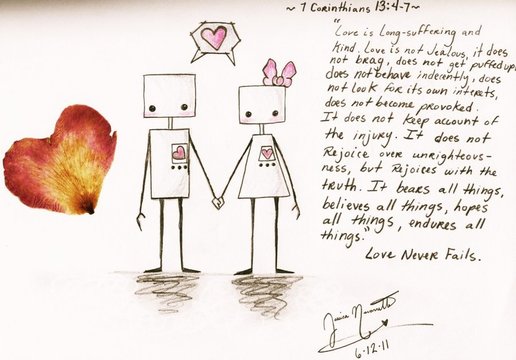 ~ 1 Corinthians 13:4-7~
"Love is Long-suffering and
Kind. Love is not Jealous, it does
not brag, does not get puffed up,
does not behave indecently, does
not look for its own interets,
does not become provoked.
It does not keep account of
the injury. It does not
Rejoice over unrighteous-
ness, but Rejoices with the
truth. It bears all things,
believes all things, hopes
all things, endures all
things."
Love Never Fails.
6-12-11